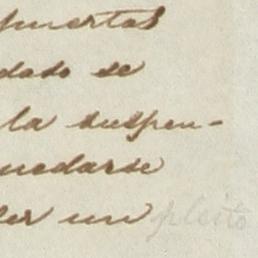 puertas
dado se
la suspen-
uedarse
er un pleito